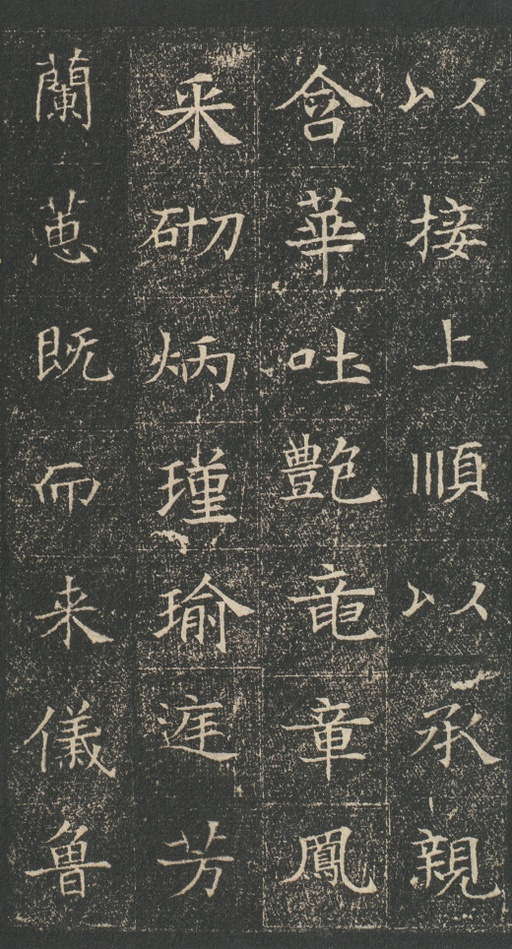 以接上順以承親
含華吐艶竜章鳳
采砌炳瑾瑜庭芳
蘭蔥既而来儀魯